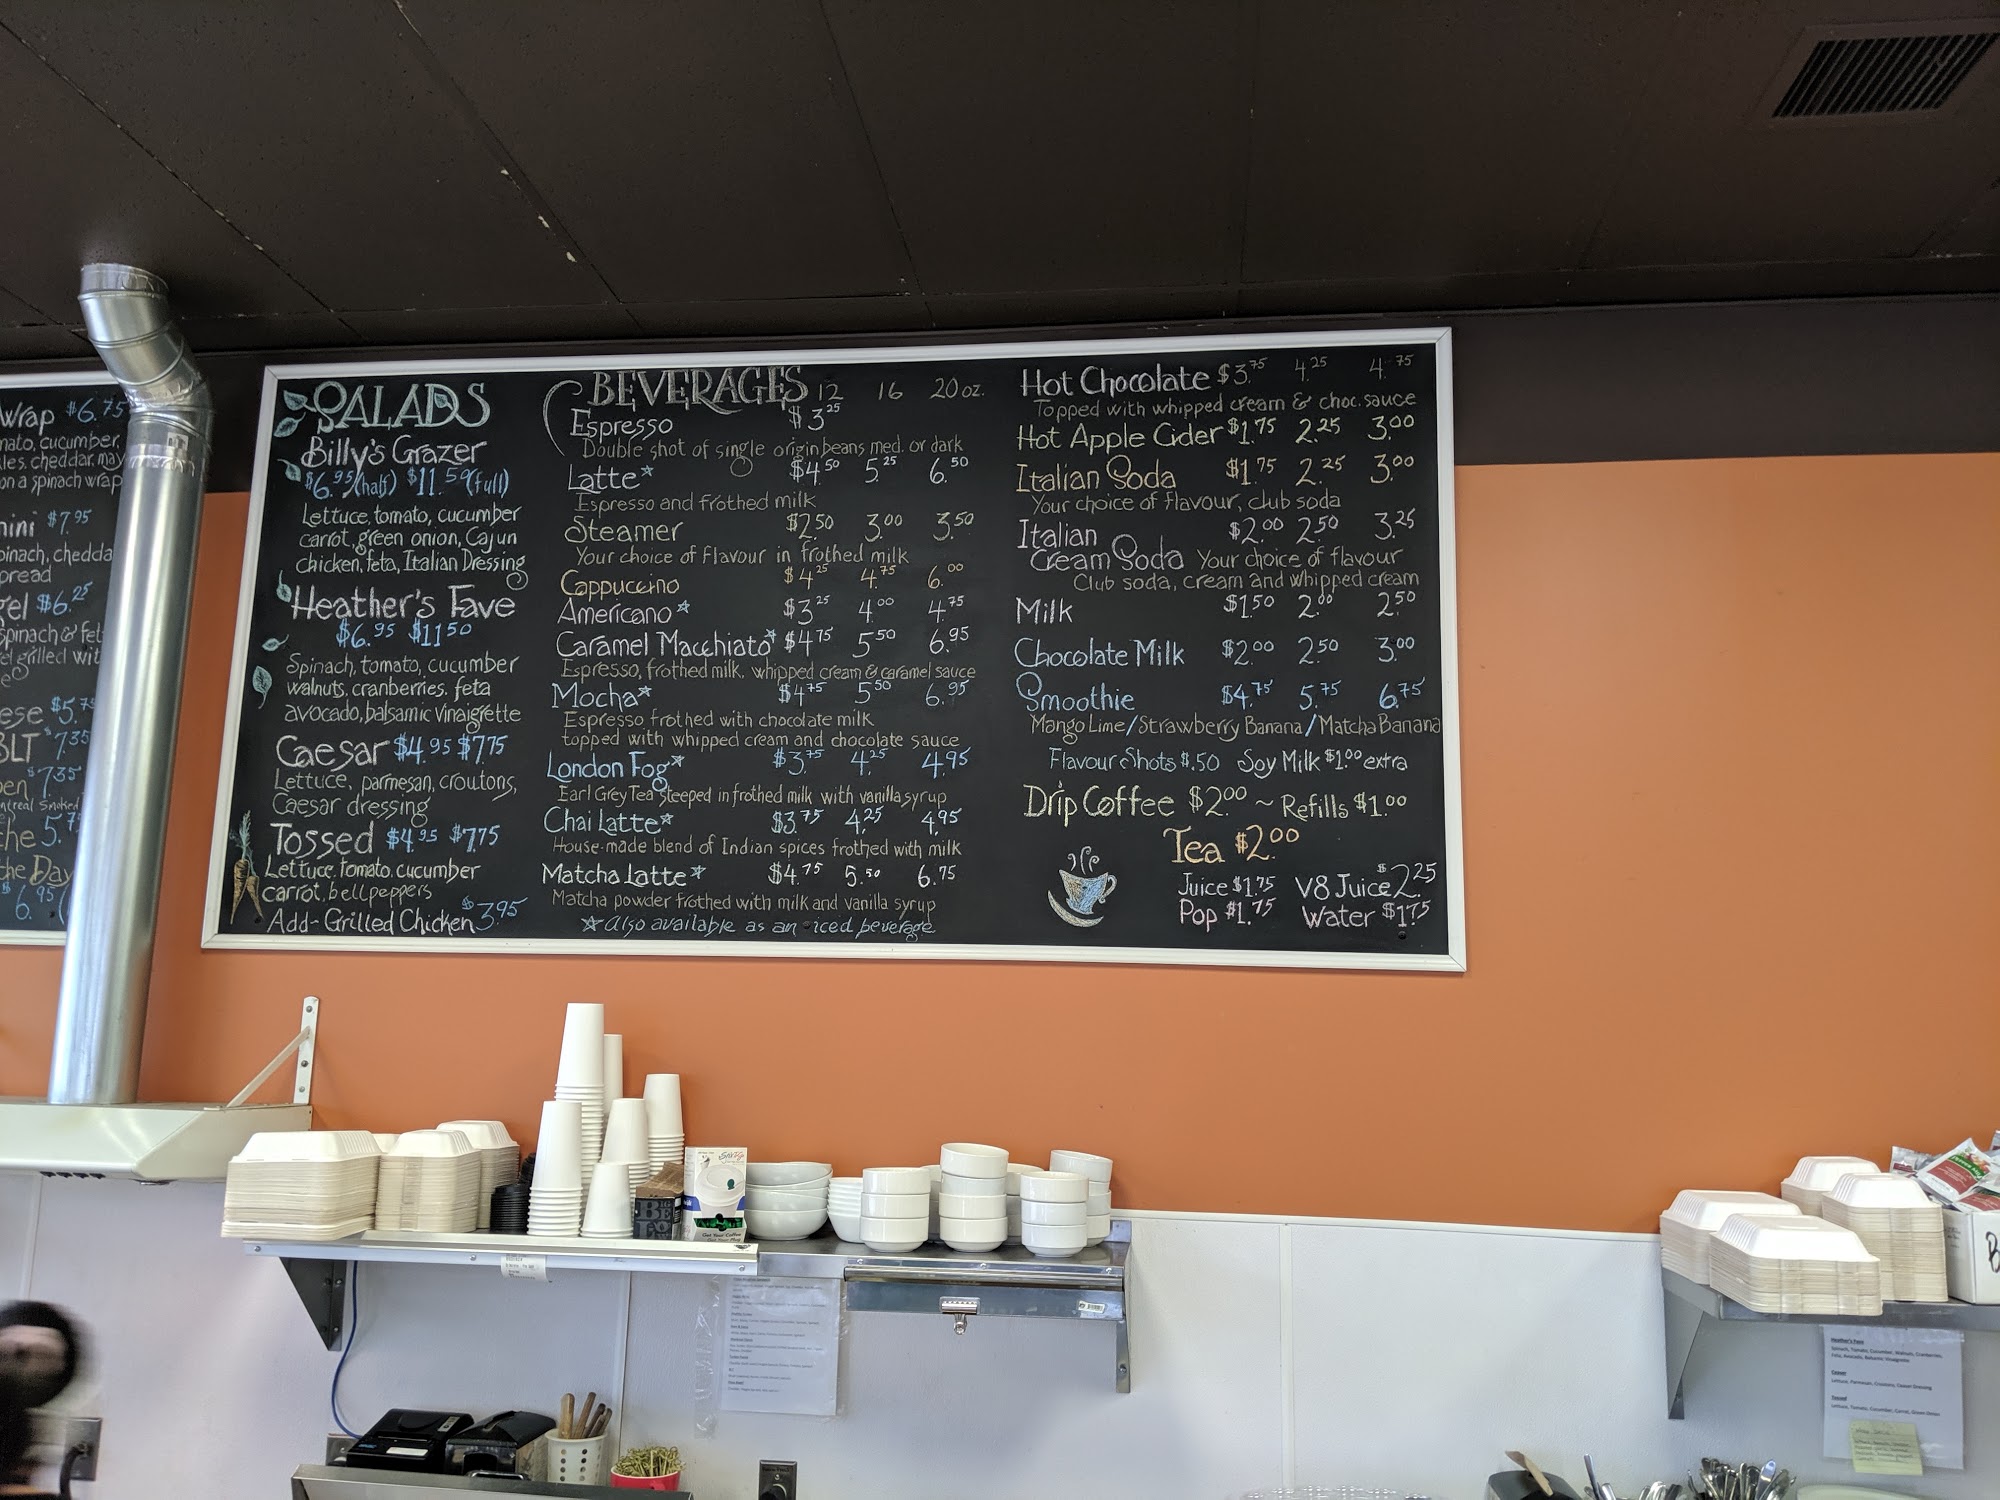 wrap $6.75
mato, cucumber,
les, cheddar, may
on a spinach wrap
nini $7.95
pinach, chedda
pread
gel $6.25
spinach & fet
el grilled wit
ese $5.75
BLT $7.35
en $7.35
the 5.75
the Day
$6.95
SALADS
Billy's Grazer
$6.95 (half) $11.59 (full)
Lettuce, tomato, cucumber
carrot, green onion, Cajun
chicken, feta, Italian Dressing
Heather's Fave
$6.95 $11.50
Spinach, tomato, cucumber
walnuts, cranberries, feta
avocado, balsamic vinaigrette
Caesar $4.95 $7.75
Lettuce, parmesan, croutons,
Caesar dressing
Tossed $4.95 $7.75
Lettuce, tomato, cucumber
carrot, bell peppers
Add-Grilled Chicken $3.95
BEVERAGES 12 16 20 oz.
Espresso $3.25
Double shot of single origin beans med. or dark
Latte* $4.50 5.25 6.50
Espresso and frothed milk
Steamer $2.50 3.00 3.50
Your choice of flavour in frothed milk
Cappuccino $4.25 4.75 6.00
Americano* $3.25 4.00 4.75
Caramel Macchiato* $4.75 5.50 6.95
Espresso, frothed milk, whipped cream & caramel sauce
Mocha* $4.75 5.50 6.95
Espresso frothed with chocolate milk
topped with whipped cream and chocolate sauce
London Fog* $3.75 4.25 4.95
Earl Grey Tea steeped in frothed milk with vanilla syrup
Chai Latte* $3.75 4.25 4.95
House-made blend of Indian spices frothed with milk
Matcha Latte* $4.75 5.50 6.75
Matcha powder frothed with milk and vanilla syrup
*Also available as an iced beverage
Hot Chocolate $3.75 4.25 4.75
Topped with whipped cream & choc. sauce
Hot Apple Cider $1.75 2.25 3.00
Italian Soda $1.75 2.25 3.00
Your choice of flavour, club soda
Italian $2.00 2.50 3.25
Cream Soda Your choice of flavour
Club soda, cream and whipped cream
Milk $1.50 2.00 2.50
Chocolate Milk $2.00 2.50 3.00
Smoothie $4.75 5.75 6.75
Mango Lime/Strawberry Banana/Matcha Banana
Flavour Shots $.50 Soy Milk $1.00 extra
Drip Coffee $2.00 ~ Refills $1.00
Tea $2.00
Juice $1.75 V8 Juice $2.25
Pop $1.75 Water $1.75
Heather's Fave
Spinach, Tomato, Cucumber, Walnuts, Cranberries,
Feta, Avocado, Balsamic Vinaigrette
Caesar
Lettuce, Parmesan, Croutons, Caesar Dressing
Tossed
Lettuce, Tomato, Cucumber, Carrot, Green Onion